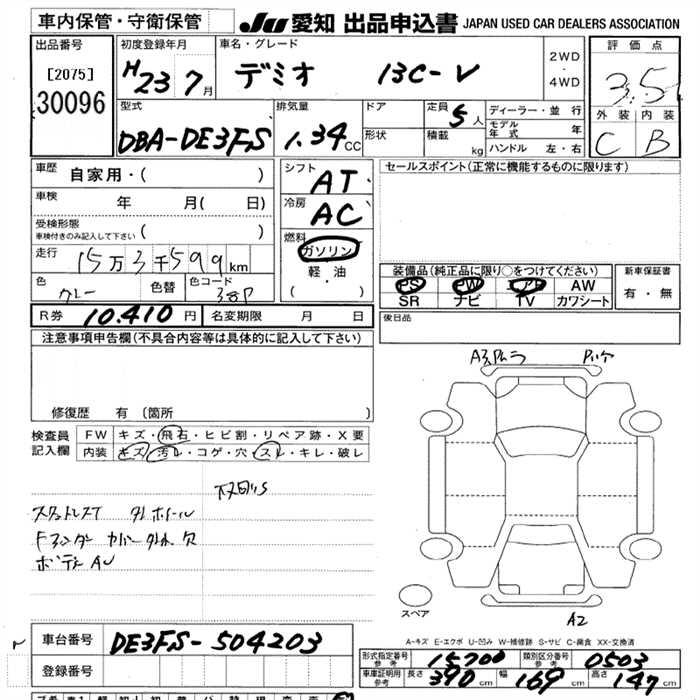 車内保管・守衛保管 JU 愛知 出品申込書 JAPAN USED CAR DEALERS ASSOCIATION
出品番号 初度登録年月 車名・グレード 2WD ・ 4WD 評価点
[2075] H23 7月 デミオ 13C-V 3.5
30096 型式 排気量 ドア 定員 5人 ディーラー・並行 外装 内装
DBA-DE3FS 1.34 CC 形状 積載 kg モデル年式 年 C B
ハンドル 左・右
車歴 自家用・( ) シフト AT セールスポイント(正常に機能するものに限ります)
車検 年 月( 日) 冷房 AC
受検形態 ( )
車検付きのみ記入して下さい
燃料 ガソリン
走行 15万3千599km 軽・油
装備品(純正品に限り○をつけてください) 新車保証書
色 グレー 色替 色コード 38P ・( )
PS PW エアB AW 有・無
SR ナビ TV カワシート
R券 10.410円 名変期限 月 日 後日品
注意事項申告欄(不具合内容等は具体的に記入して下さい)
修復歴 有(箇所 )
検査員 FW キズ・飛石・ヒビ割・リペア跡・X要
記入欄 内装 キズ・汚レ・コゲ・穴・スレ・キレ・破レ
スペア
A2
A-キズ E-エクボ U-凹み W-補修跡 S-サビ C-腐食 XX-交換済
車台番号 DE3FS-504203 形式指定番号 参考 15700 類別区分番号 参考 0503
登録番号 車庫証明用 参考 長さ 390cm 幅 169cm 高さ 147cm